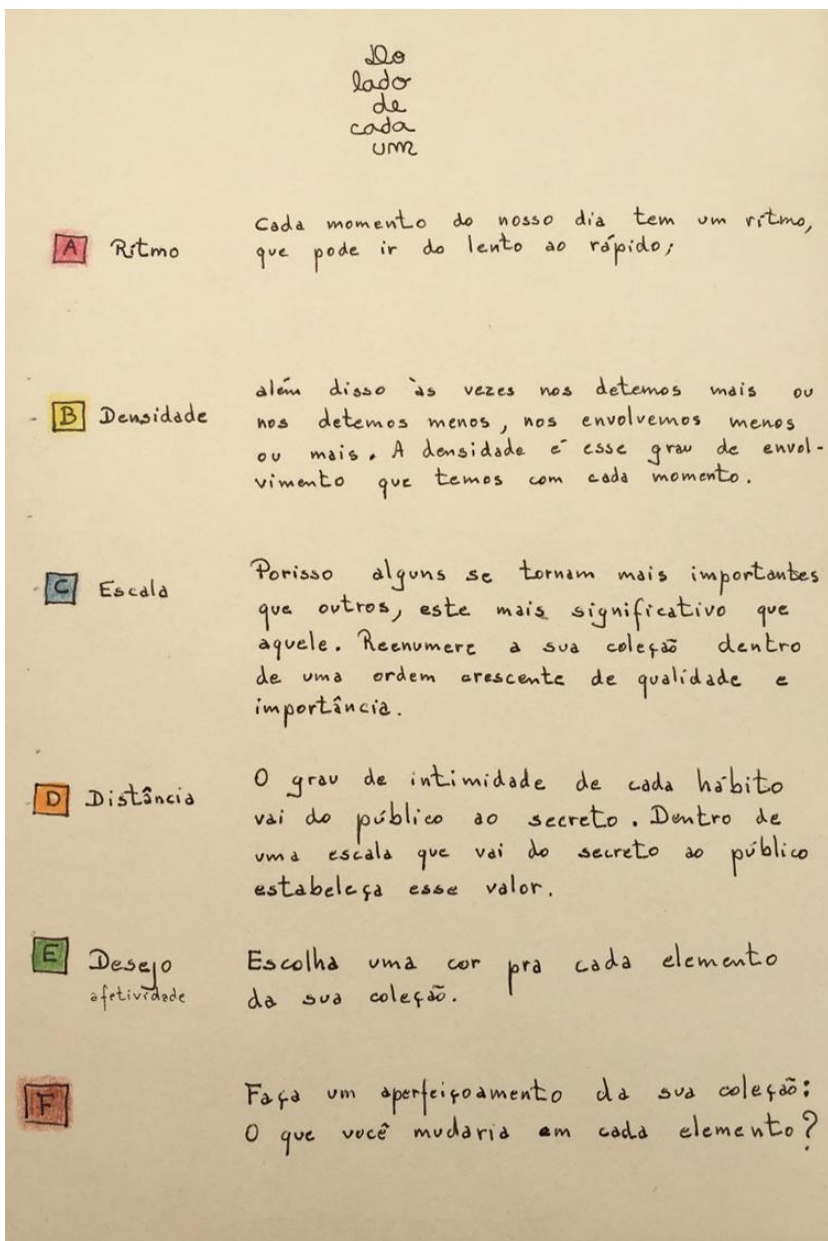 Do
lado
de
cada
um
A Ritmo
Cada momento do nosso dia tem um rítmo,
que pode ir do lento ao rápido;
B Densidade
além disso às vezes nos detemos mais ou
nos detemos menos, nos envolvemos menos
ou mais. A densidade é esse grau de envol-
vimento que temos com cada momento.
C Escala
Porisso alguns se tornam mais importantes
que outros, este mais significativo que
aquele. Reenumere a sua coleção dentro
de uma ordem crescente de qualidade e
importância.
D Distância
O grau de intimidade de cada hábito
vai do público ao secreto. Dentro de
uma escala que vai do secreto ao público
estabeleça esse valor.
E Desejo
afetividade
Escolha uma cor pra cada elemento
da sua coleção.
F
Faça um aperfeiçoamento da sua coleção:
O que você mudaria em cada elemento?